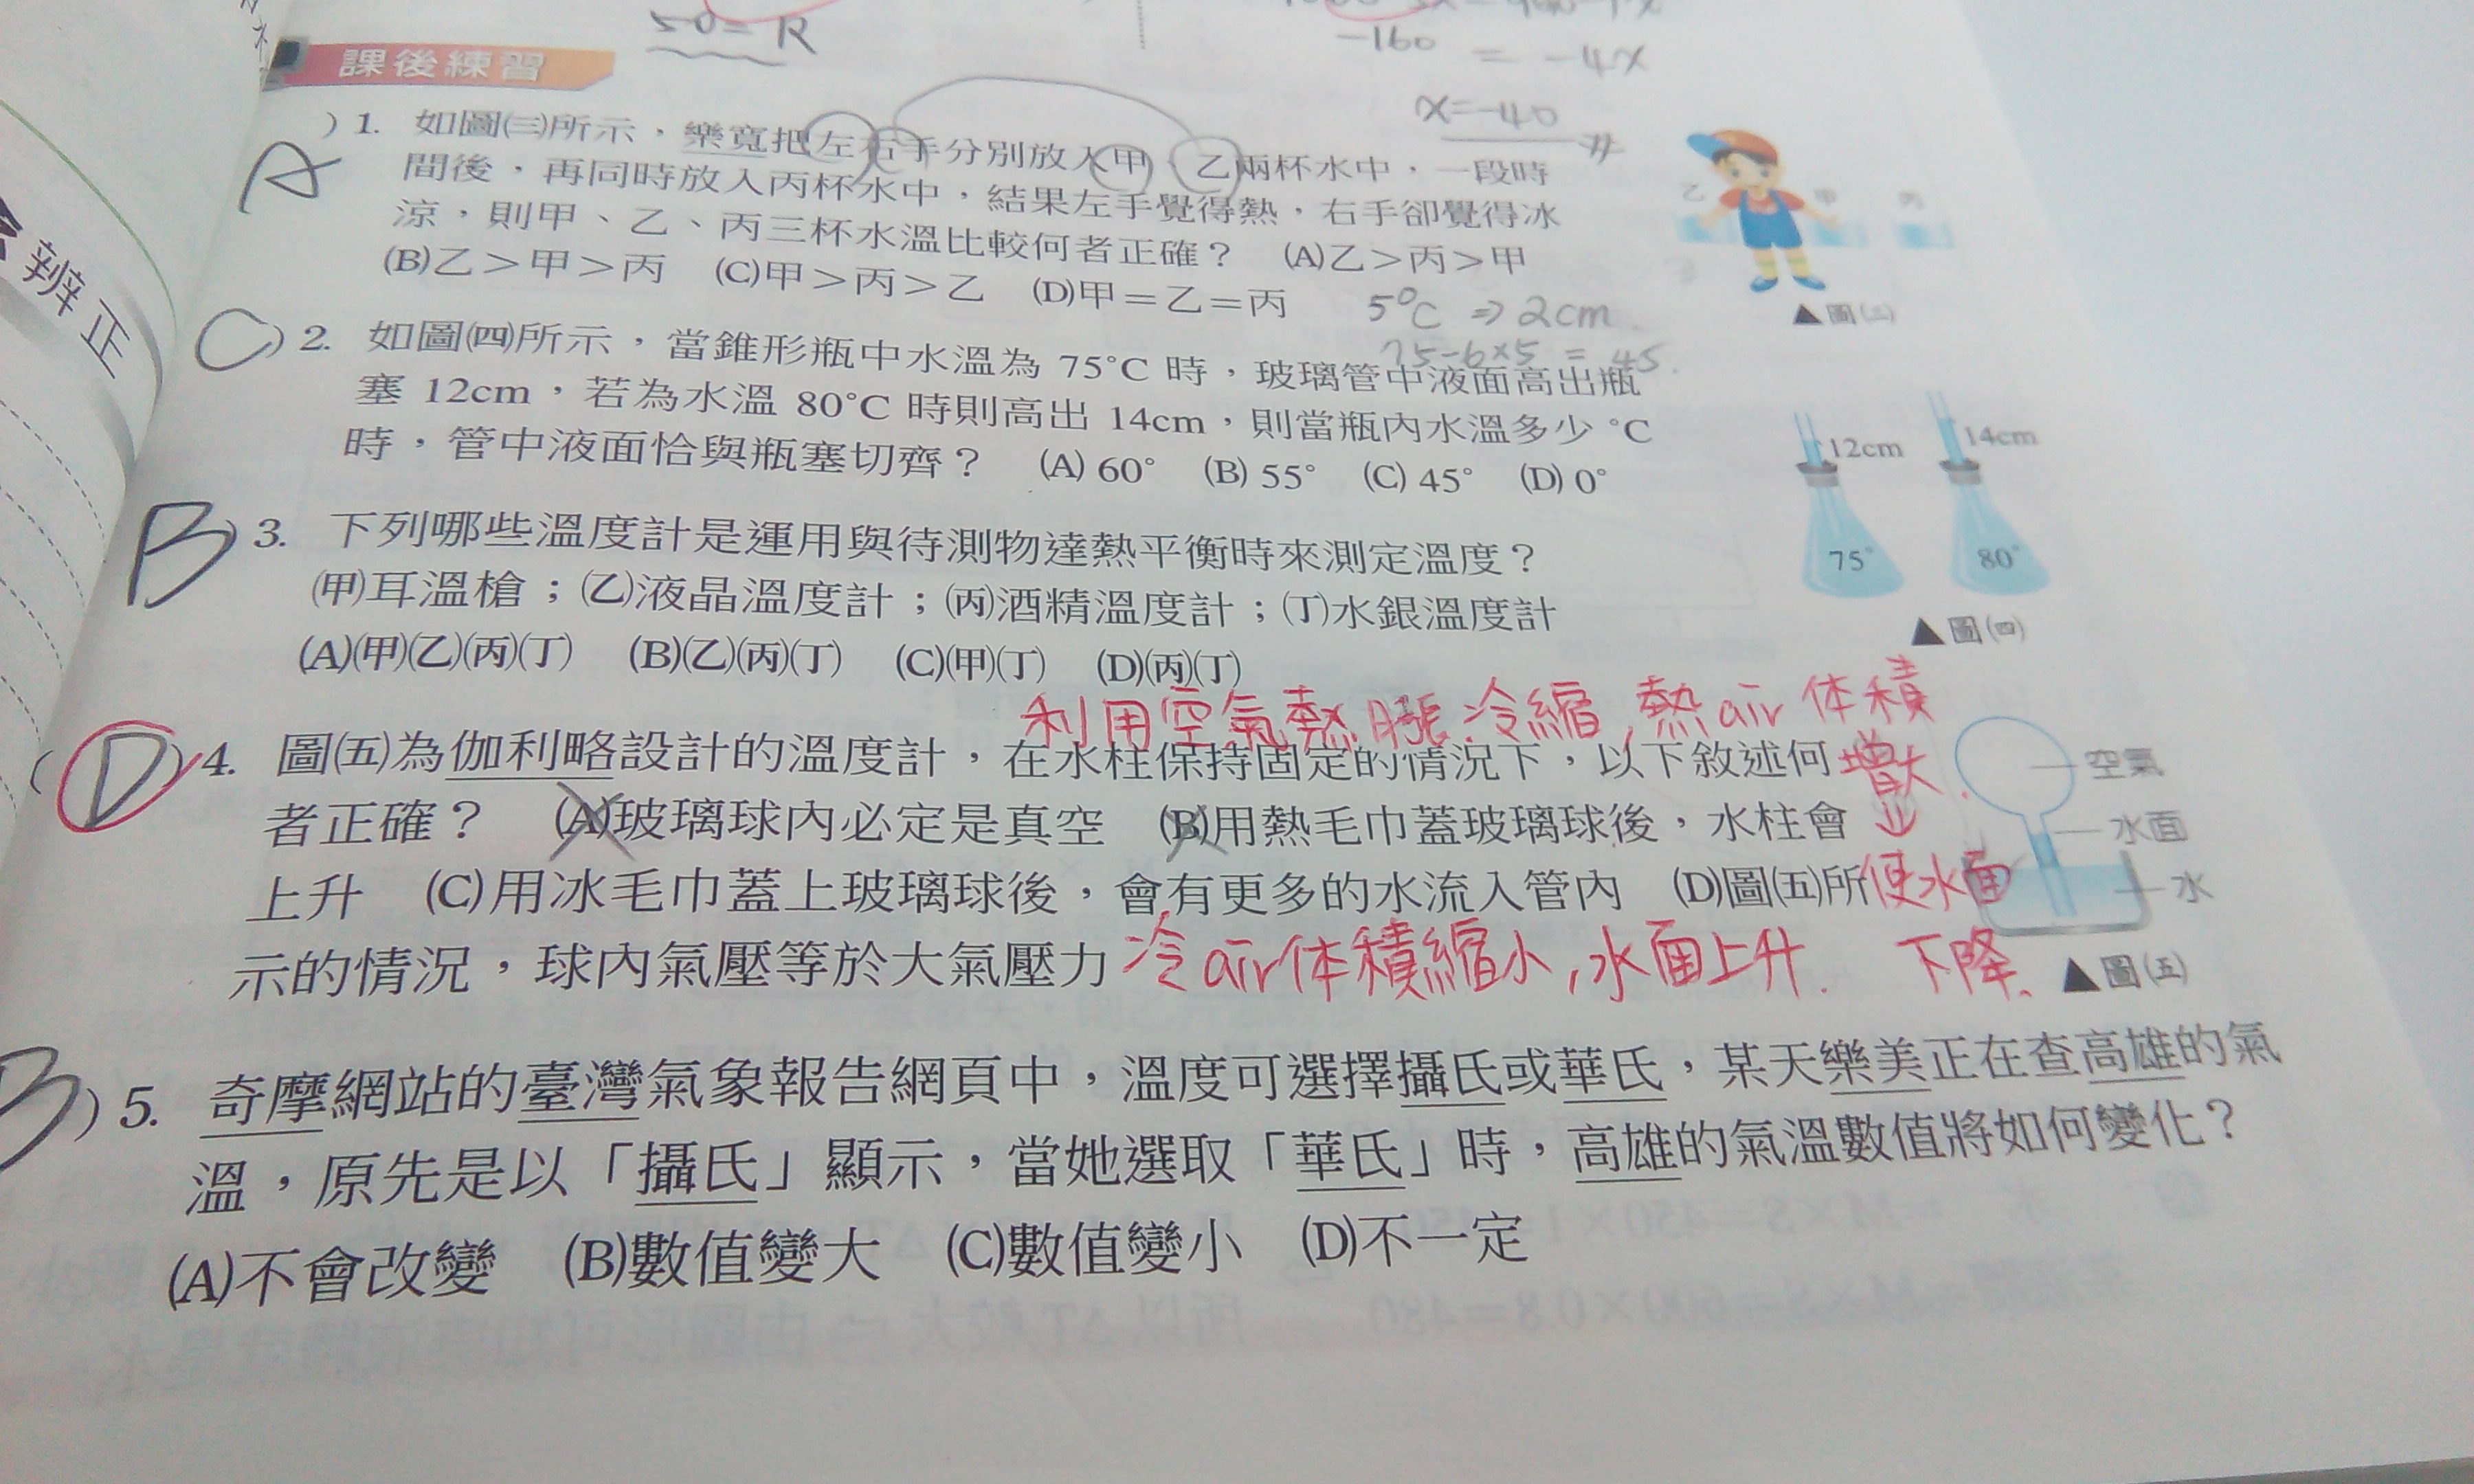 50=R
-160 = -4x
x=-40
課後練習
A )1. 如圖㈢所示，樂寬把左右手分別放入甲、乙兩杯水中，一段時
間後，再同時放入丙杯水中，結果左手覺得熱，右手卻覺得冰
涼，則甲、乙、丙三杯水溫比較何者正確？ (A)乙＞丙＞甲
(B)乙＞甲＞丙 (C)甲＞丙＞乙 (D)甲＝乙＝丙
乙 甲 丙
▲圖㈢
5°C ⇒ 2cm
75-6×5 = 45.
C )2. 如圖㈣所示，當錐形瓶中水溫為 75°C 時，玻璃管中液面高出瓶
塞 12cm，若為水溫 80°C 時則高出 14cm，則當瓶內水溫多少 °C
時，管中液面恰與瓶塞切齊？ (A) 60° (B) 55° (C) 45° (D) 0°
12cm 14cm
75° 80°
▲圖㈣
B )3. 下列哪些溫度計是運用與待測物達熱平衡時來測定溫度？
(甲)耳溫槍；(乙)液晶溫度計；(丙)酒精溫度計；(丁)水銀溫度計
(A)(甲)(乙)(丙)(丁) (B)(乙)(丙)(丁) (C)(甲)(丁) (D)(丙)(丁)
利用空氣熱脹冷縮，熱air体積
增大
↓
使水面
下降、
( D )4. 圖㈤為伽利略設計的溫度計，在水柱保持固定的情況下，以下敘述何
者正確？ (A)玻璃球內必定是真空 (B)用熱毛巾蓋玻璃球後，水柱會
上升 (C)用冰毛巾蓋上玻璃球後，會有更多的水流入管內 (D)圖㈤所
示的情況，球內氣壓等於大氣壓力
冷air体積縮小，水面上升.
空氣
水面
水
▲圖㈤
B )5. 奇摩網站的臺灣氣象報告網頁中，溫度可選擇攝氏或華氏，某天樂美正在查高雄的氣
溫，原先是以「攝氏」顯示，當她選取「華氏」時，高雄的氣溫數值將如何變化？
(A)不會改變 (B)數值變大 (C)數值變小 (D)不一定
辨正